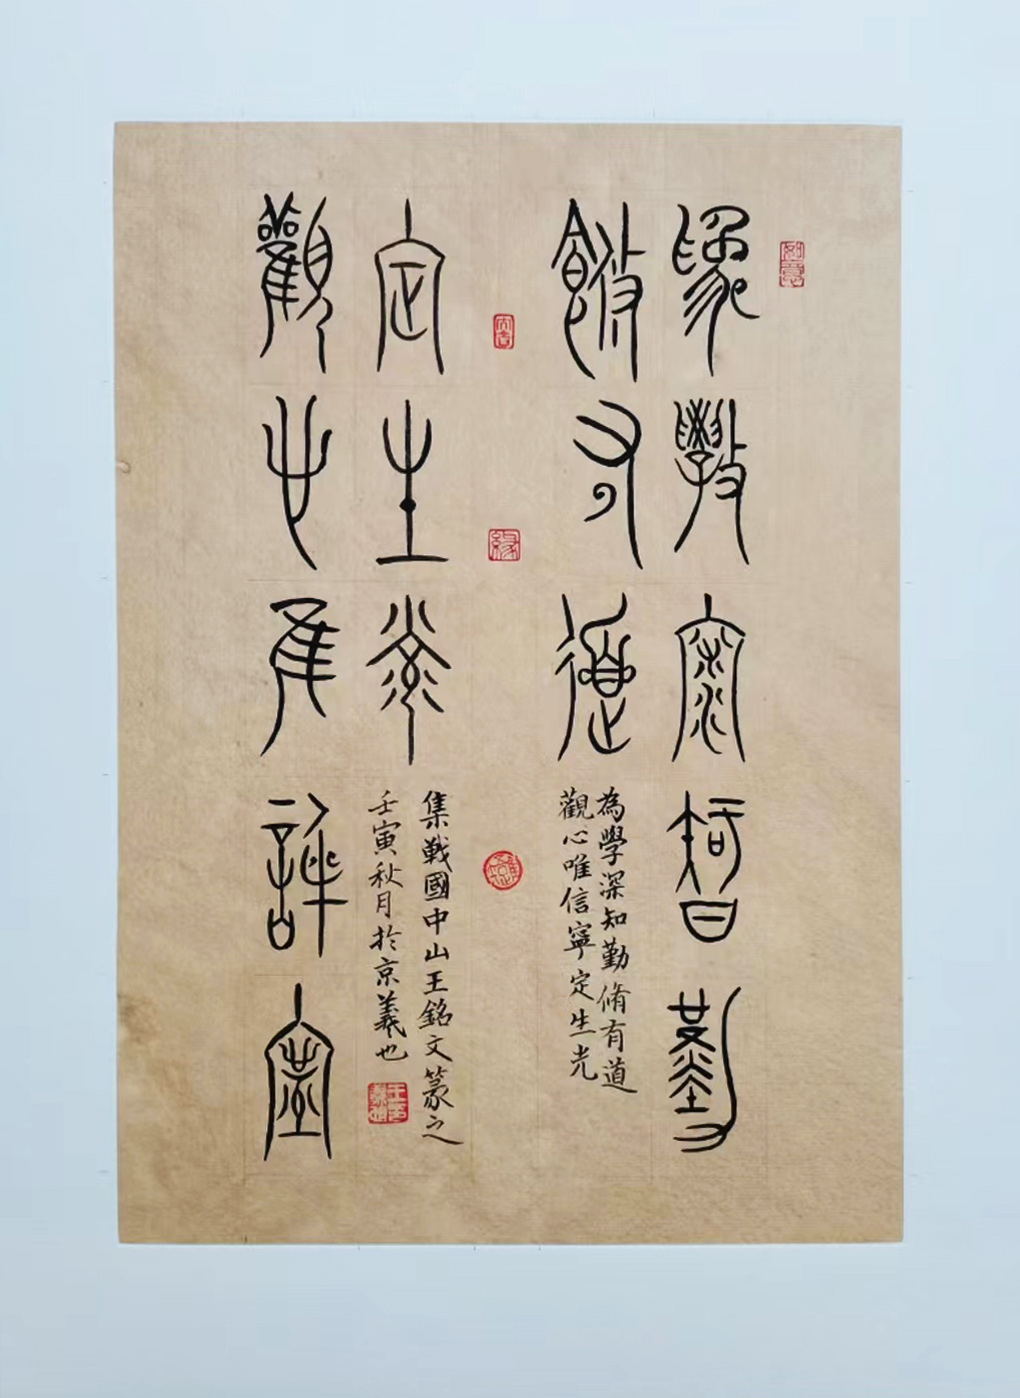 為學深知勤
脩有道
為學深知勤脩有道
觀心唯信寧定生光
觀心唯信寧
定生光
集戰國中山王銘文篆之
壬寅秋月於京羲也
如意
緣